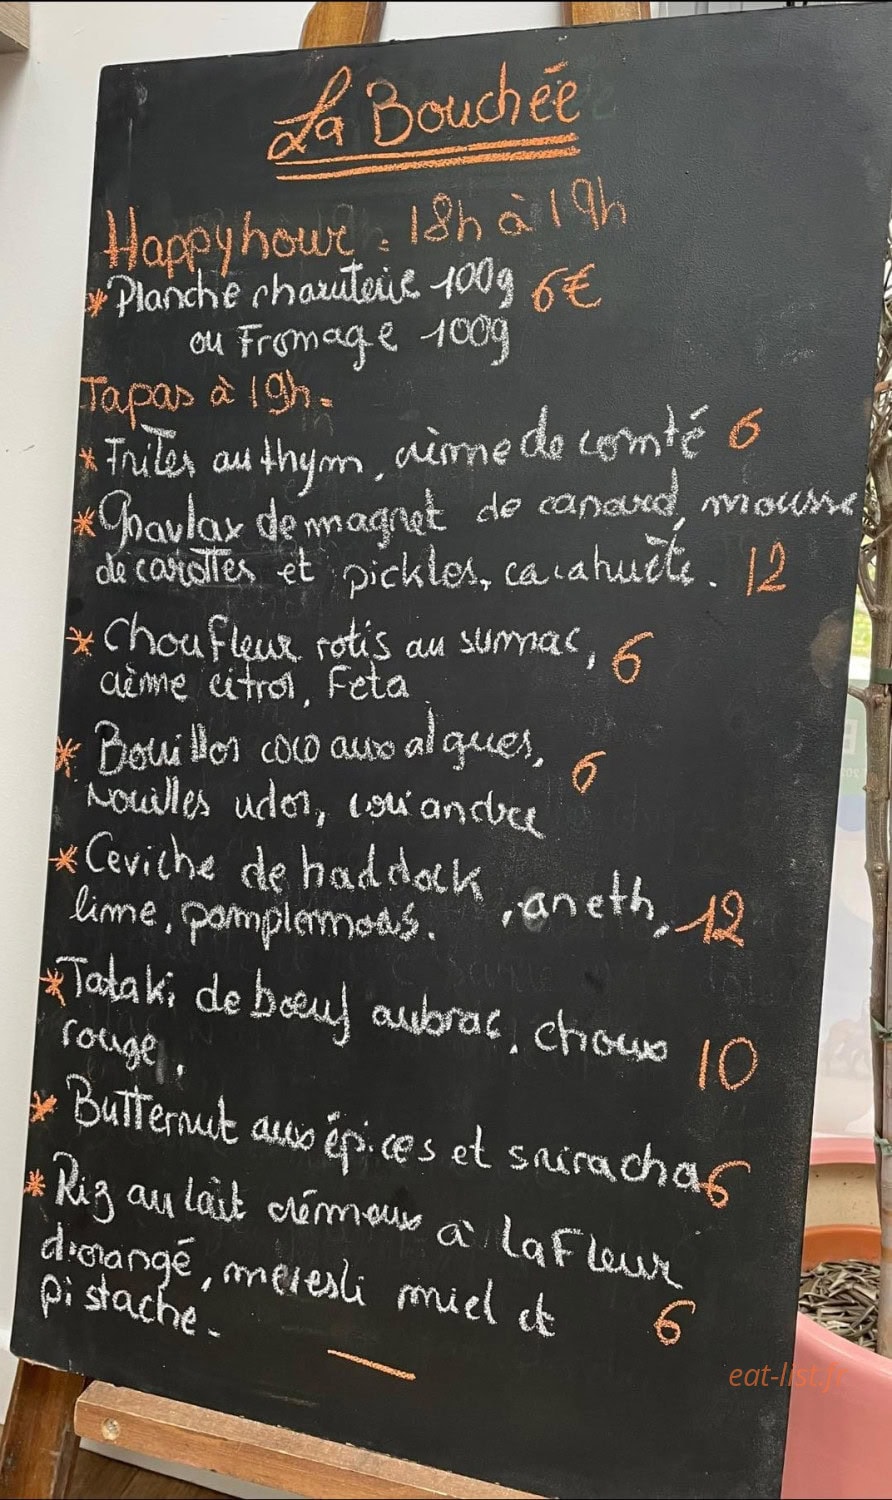 La Bouchée
Happyhour : 18h à 19h
* Planche charcuterie 100g 6€
ou Fromage 100g
Tapas à 19h :
* Frites au thym, crème de comté 6
* Gravlax de magret de canard, mousse
de carottes et pickles, cacahuète. 12
* Choufleur rotis au sumac, 6
crème citron, Feta
* Bouillon coco aux algues, 6
nouilles udon, coriandre
* Ceviche de haddock, aneth, 12
lime, pamplemous.
* Tataki de bœuf aubrac, choux 10
rouge.
* Butternut aux épices et sriracha 6
* Riz au lait crémeux à la Fleur
d'orangé, meresli miel et 6
pistache.
eat-list.fr